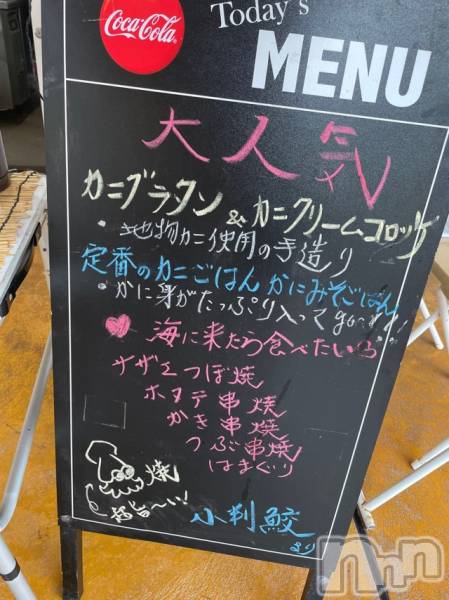 Coca-Cola
Today's
MENU
大人気
カニグラタン & カニクリームコロッケ
・地物カニ使用の手造り
定番のカニごはん かにみそごはん
・かに身がたっぷり入って
♥ 海に来たら食べたいっ
サザエつぼ焼
ホタテ串焼
かき串焼
つぶ串焼
はまぐり
焼
旨〜い!
小判鮫
より